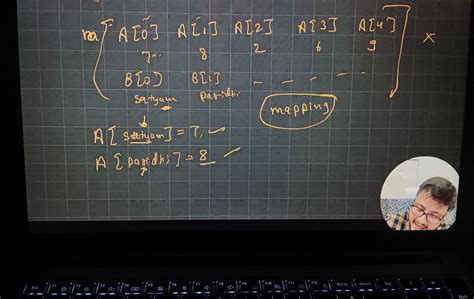 na A[0] A[1] A[2] A[3] A[4] x
7 8 2 6 9
B[0] B[1] - - - -
satyam paridhi
mapping
A[satyam] = 7
A[paridhi] = 8